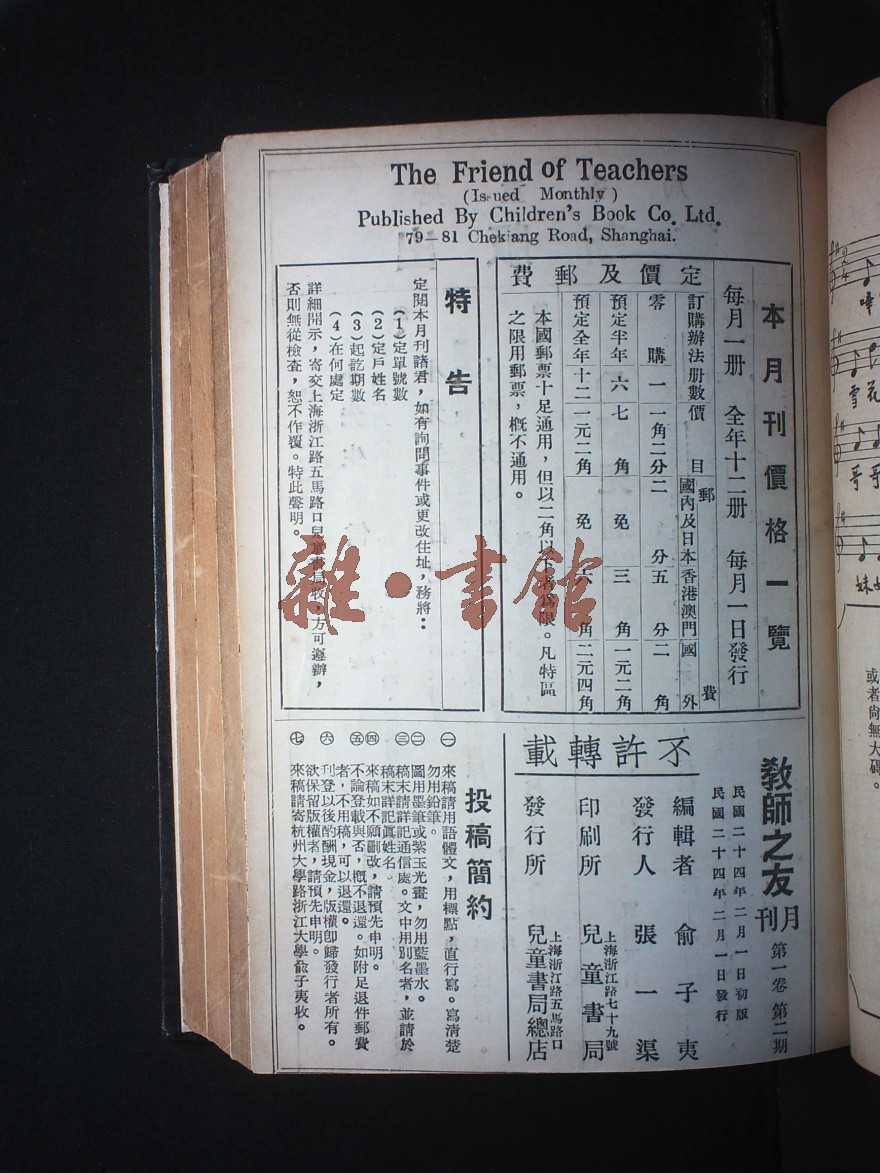 The Friend of Teachers
(Issued Monthly)
Published By Children's Book Co. Ltd.
79—81 Chekiang Road, Shanghai.
本月刊價格一覽
每月一册 全年十二册 每月一日發行
定價及郵費
訂購辦法 册數 價目 郵費
國內及日本 香港澳門 國外
零購 一 一角二分 二分 五分 二角
預定半年 六 七角 免 三角 一元二角
預定全年 十二 一元二角 免 六角 二元四角
本國郵票十足通用,但以二角以下者爲限。凡特區
之限用郵票,概不通用。
特告
定閱本月刊諸君,如有詢問事件或更改住址,務將:
(1)定單號數
(2)定戶姓名
(3)起訖期數
(4)在何處定
詳細開示,寄交上海浙江路五馬路口兒童書局收,方可遵辦,
否則無從檢查,恕不作覆。特此聲明。
雜·書館
教師之友
月刊 第一卷第二期
民國二十四年二月一日初版
民國二十四年二月一日發行
不許轉載
編輯者 俞子夷
發行人 張一渠
印刷所 上海浙江路七十九號 兒童書局
發行所 上海浙江路五馬路口 兒童書局總店
投稿簡約
㊀ 來稿請用語體文,用標點,直行寫。寫清楚
勿用鉛筆。
㊁ 圖用墨筆或紫玉光畫,勿用藍墨水。
㊂ 稿末請詳記通信處。文中用別名者,並請於
稿末詳記眞姓名。
㊃ 來稿如不願刪改,請預先申明。
㊄ 不論登載與否,概不退還。如附足退件郵費
者,不用稿,可以退還。
㊅ 刊登以後酌酬現金,版權卽歸發行者所有。
欲保留版權者,請預先申明。
㊆ 來稿請寄杭州大學路浙江大學俞子夷收。
雪花
哥哥
或者尙無大碍。